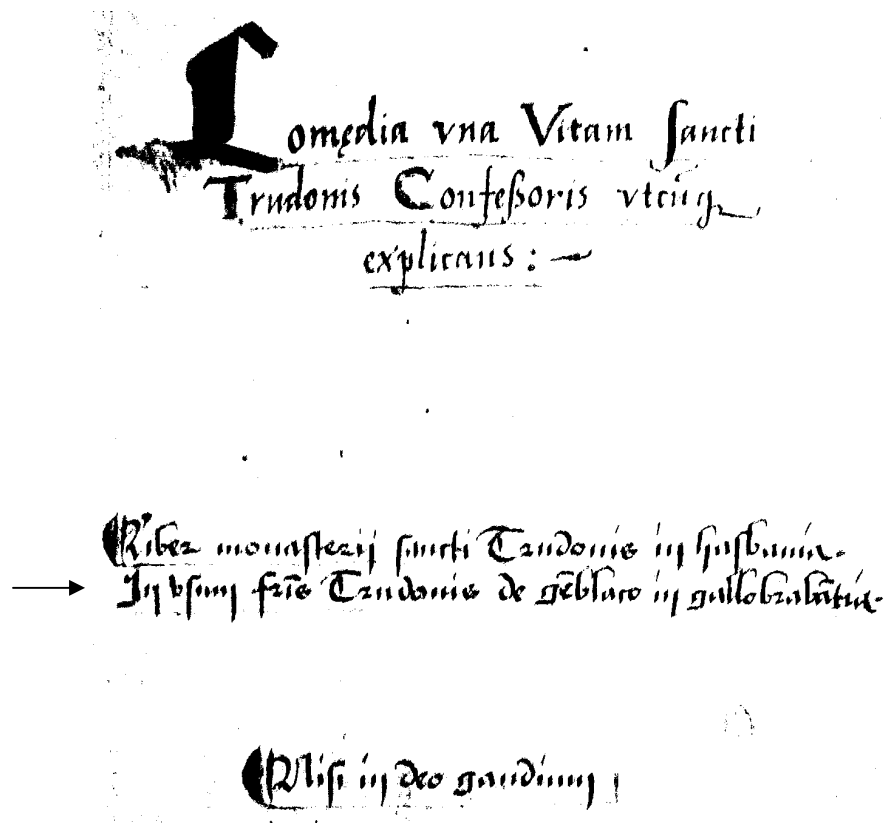 Comędia vna Vitam sancti
Trudonis Confeßoris vtcūq;
explicans :~
Liber monasterij sancti Trudonis in hasbania.
In vsum fr̄is Trudonis de gēblaco in gallobrabātia.
Nisi in deo gaudium